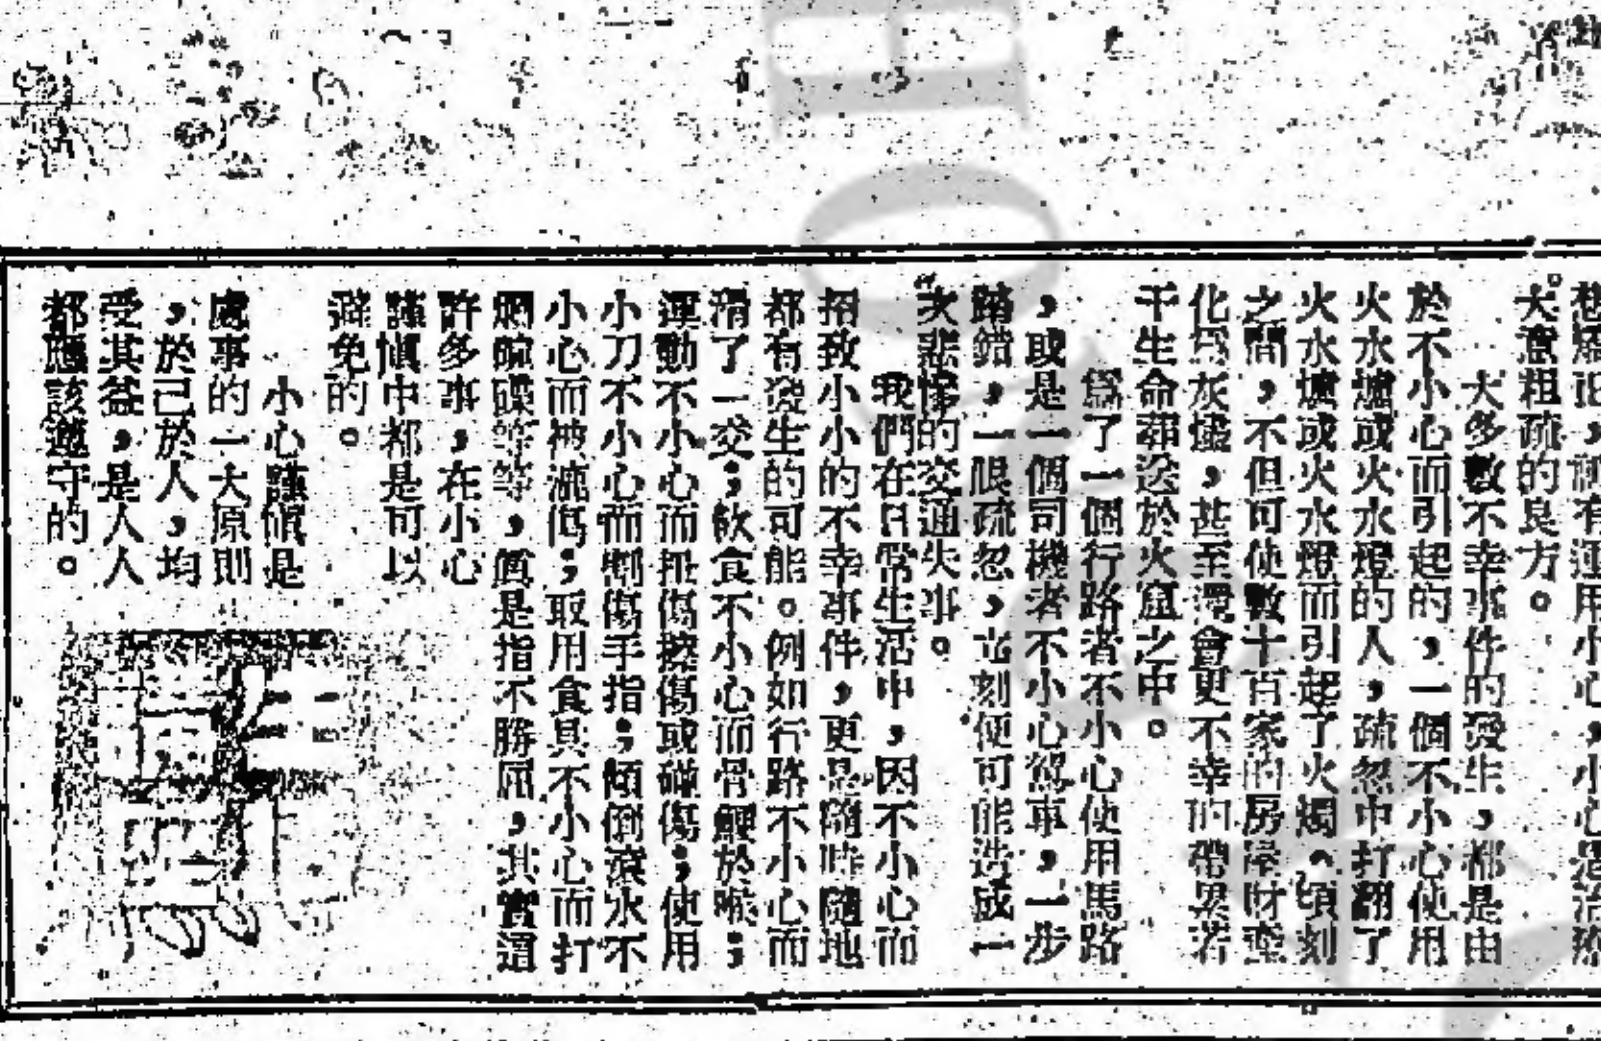 想矯正，就有運用小心，小心是治療
大意粗疏的良方。
大多數不幸事件的發生，都是由
於不小心而引起的，一個不小心使用
火水爐或火水燈的人，疏忽中打翻了
火水爐或火水燈而引起了火燭，頃刻
之間，不但可使數十百家的房屋財產
化爲灰燼，甚至還會更不幸的帶累若
干生命葬送於火窟之中。
爲了一個行路者不小心使用馬路
，或是一個司機者不小心駕車，一步
踏錯，一眼疏忽，立刻便可能造成一
次悲慘的交通失事。
我們在日常生活中，因不小心而
招致小小的不幸事件，更是隨時隨地
都有發生的可能。例如行路不小心而
滑了一交；飲食不小心而骨鯁於喉；
運動不小心而扭傷擦傷或碰傷；使用
小刀不小心而𠝹傷手指；傾倒滾水不
小心而被淥傷；取用食具不小心而打
爛碗碟等等，眞是指不勝屈，其實這
許多事，在小心
謹愼中都是可以
避免的。
小心謹愼是
處事的一大原則
，於己於人，均
受其益，是人人
都應該遵守的。